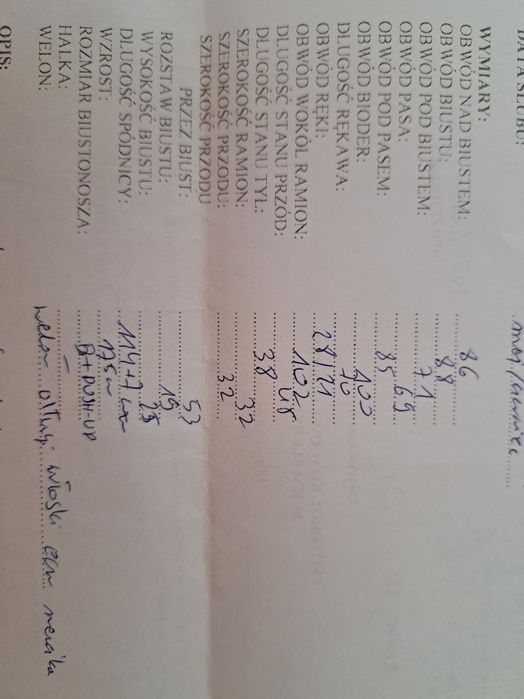 DATA ŚLUBU:
WYMIARY:
OBWÓD NAD BIUSTEM: 86
OBWÓD BIUSTU: 88
OBWÓD POD BIUSTEM: 71
OBWÓD PASA: 69
OBWÓD POD PASEM: 85
OBWÓD BIODER: 100
DŁUGOŚĆ RĘKAWA: 70
OBWÓD RĘKI: 28/21
OBWÓD WOKÓŁ RAMION: 102
DŁUGOŚĆ STANU PRZÓD: 48
DŁUGOŚĆ STANU TYŁ: 38
SZEROKOŚĆ RAMION: 32
SZEROKOŚĆ PRZODU: 32
SZEROKOŚĆ PRZODU
PRZEZ BIUST: 53
ROZSTAW BIUSTU: 19
WYSOKOŚĆ BIUSTU: 28
DŁUGOŚĆ SPÓDNICY: 114+7cm
WZROST: 175cm
ROZMIAR BIUSTONOSZA: B+PUSH-UP
HALKA: –
WELON: welon długi włoski
OPIS: